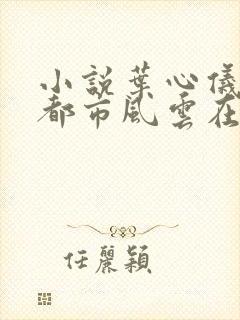 小說葉心儀
都市風雲在
任麗穎